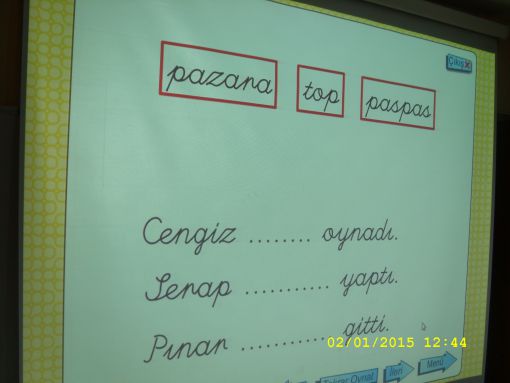 Çıkış
pazara top paspas
Cengiz ........ oynadı.
Serap ........... yaptı.
Pınar ........... gitti.
02/01/2015 12:44
Tekrar Oynat İleri Menü